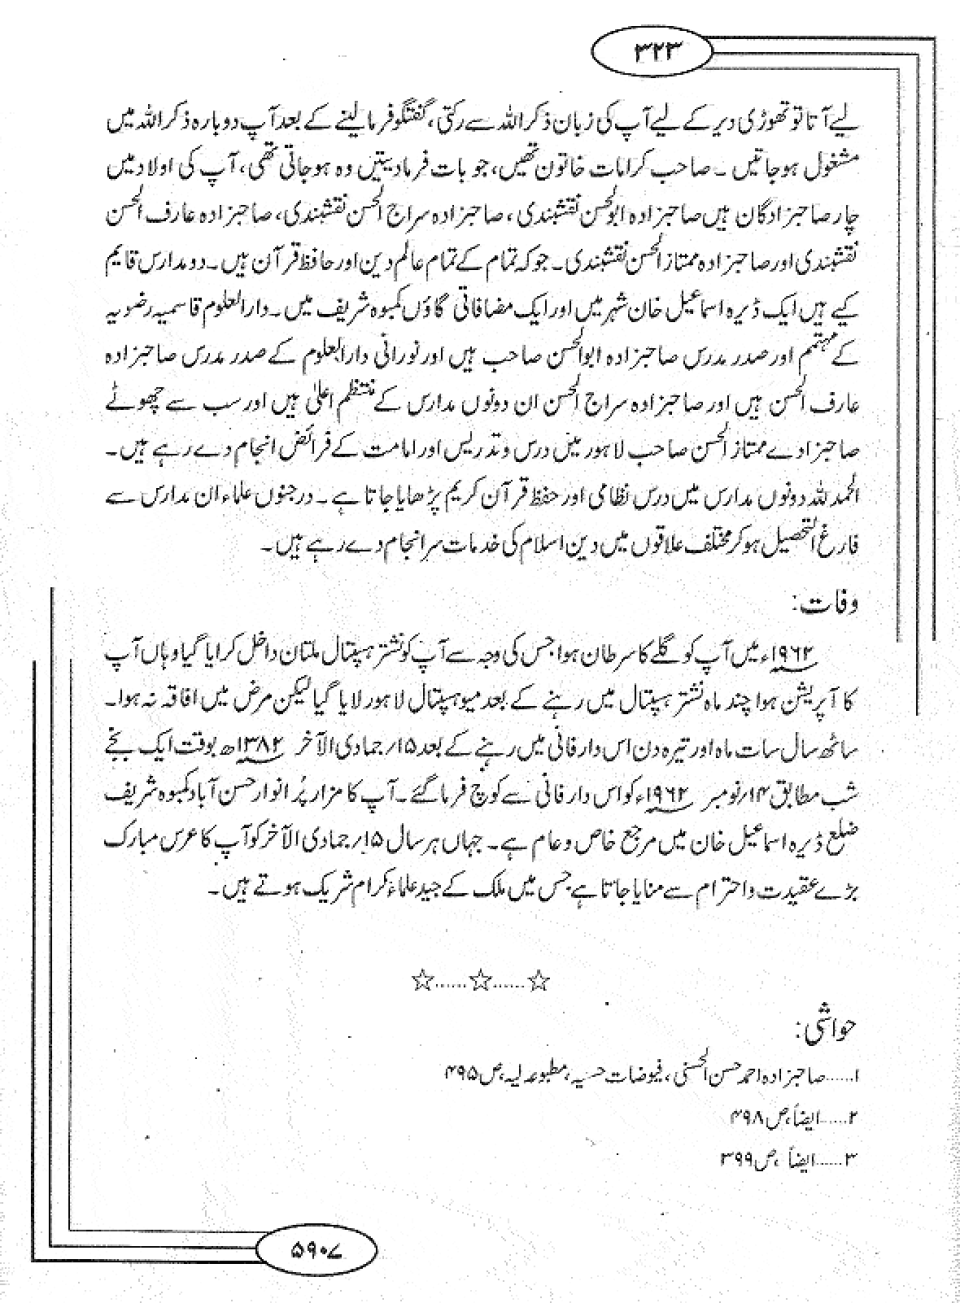 ۳۲۳
لیے آتا تو تھوڑی دیر کے لیے آپ کی زبان ذکر اللہ سے رکتی، گفتگو فرما لینے کے بعد آپ دوبارہ ذکر اللہ میں
مشغول ہو جاتیں۔ صاحب کرامات خاتون تھیں، جو بات فرما دیتیں وہ ہو جاتی تھی، آپ کی اولاد میں
چار صاحبزادگان ہیں صاحبزادہ ابوالحسن نقشبندی، صاحبزادہ سراج الحسن نقشبندی، صاحبزادہ عارف الحسن
نقشبندی اور صاحبزادہ ممتاز الحسن نقشبندی۔ جو کہ تمام کے تمام عالم دین اور حافظ قرآن ہیں۔ دو مدارس قایم
کیے ہیں ایک ڈیرہ اسماعیل خان شہر میں اور ایک مضافاتی گاؤں کمبوہ شریف میں۔ دارالعلوم قاسمیہ رضویہ
کے مہتمم اور صدر مدرس صاحبزادہ ابوالحسن صاحب ہیں اور نورانی دارالعلوم کے صدر مدرس صاحبزادہ
عارف الحسن ہیں اور صاحبزادہ سراج الحسن ان دونوں مدارس کے منتظم اعلیٰ ہیں اور سب سے چھوٹے
صاحبزادے ممتاز الحسن صاحب لاہور میں درس و تدریس اور امامت کے فرائض انجام دے رہے ہیں۔
الحمد للہ دونوں مدارس میں درس نظامی اور حفظ قرآن کریم پڑھایا جاتا ہے۔ درجنوں علماء ان مدارس سے
فارغ التحصیل ہو کر مختلف علاقوں میں دین اسلام کی خدمات سرانجام دے رہے ہیں۔
وفات:
۱۹۶۲ء میں آپ کو گلے کا سرطان ہوا جس کی وجہ سے آپ کو نشتر ہسپتال ملتان داخل کرایا گیا وہاں آپ
کا آپریشن ہوا چند ماہ نشتر ہسپتال میں رہنے کے بعد میو ہسپتال لاہور لایا گیا لیکن مرض میں افاقہ نہ ہوا۔
ساٹھ سال سات ماہ اور تیرہ دن اس دار فانی میں رہنے کے بعد ۱۵/ جمادی الآخر ۱۳۸۲ھ بوقت ایک بجے
شب مطابق ۱۴/ نومبر ۱۹۶۲ء کو اس دار فانی سے کوچ فرما گئے۔ آپ کا مزار پُر انوار حسن آباد کمبوہ شریف
ضلع ڈیرہ اسماعیل خان میں مرجع خاص و عام ہے۔ جہاں ہر سال ۱۵/ جمادی الآخر کو آپ کا عرس مبارک
بڑے عقیدت و احترام سے منایا جاتا ہے جس میں ملک کے جید علماء کرام شریک ہوتے ہیں۔
☆......☆......☆
حواشی:
۱......صاحبزادہ احمد حسن الحسنی، فیوضات حسنیہ، مطبوعہ لیہ، ص ۴۹۵
۲......ایضاً، ص ۴۹۸
۳......ایضاً، ص ۳۹۹
۵۹۰۷